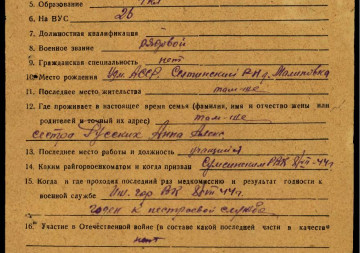 5. Образование 7 кл
6. На ВУС 26
7. Должностная квалификация
8. Военное звание рядовой
9. Гражданская специальность нет
10. Место рождения Удм. АССР, Селтинский р-н д. Малиновка
11. Последнее место жительства там-же
12. Где проживает в настоящее время семья (фамилия, имя и отчество жены или
родителей и точный их адрес) там-же
сестра Русских Анна
13. Последнее место работы и должность учащийся
14. Каким райгорвоенкоматом и когда призван РВК 44 г.
15. Когда и где проходил последний раз медкомиссию и результат годности к
военной службе РВК 44 г.
годен к нестроевой службе
16. Участие в Отечественной войне (в составе какой последней части в качестве
нет